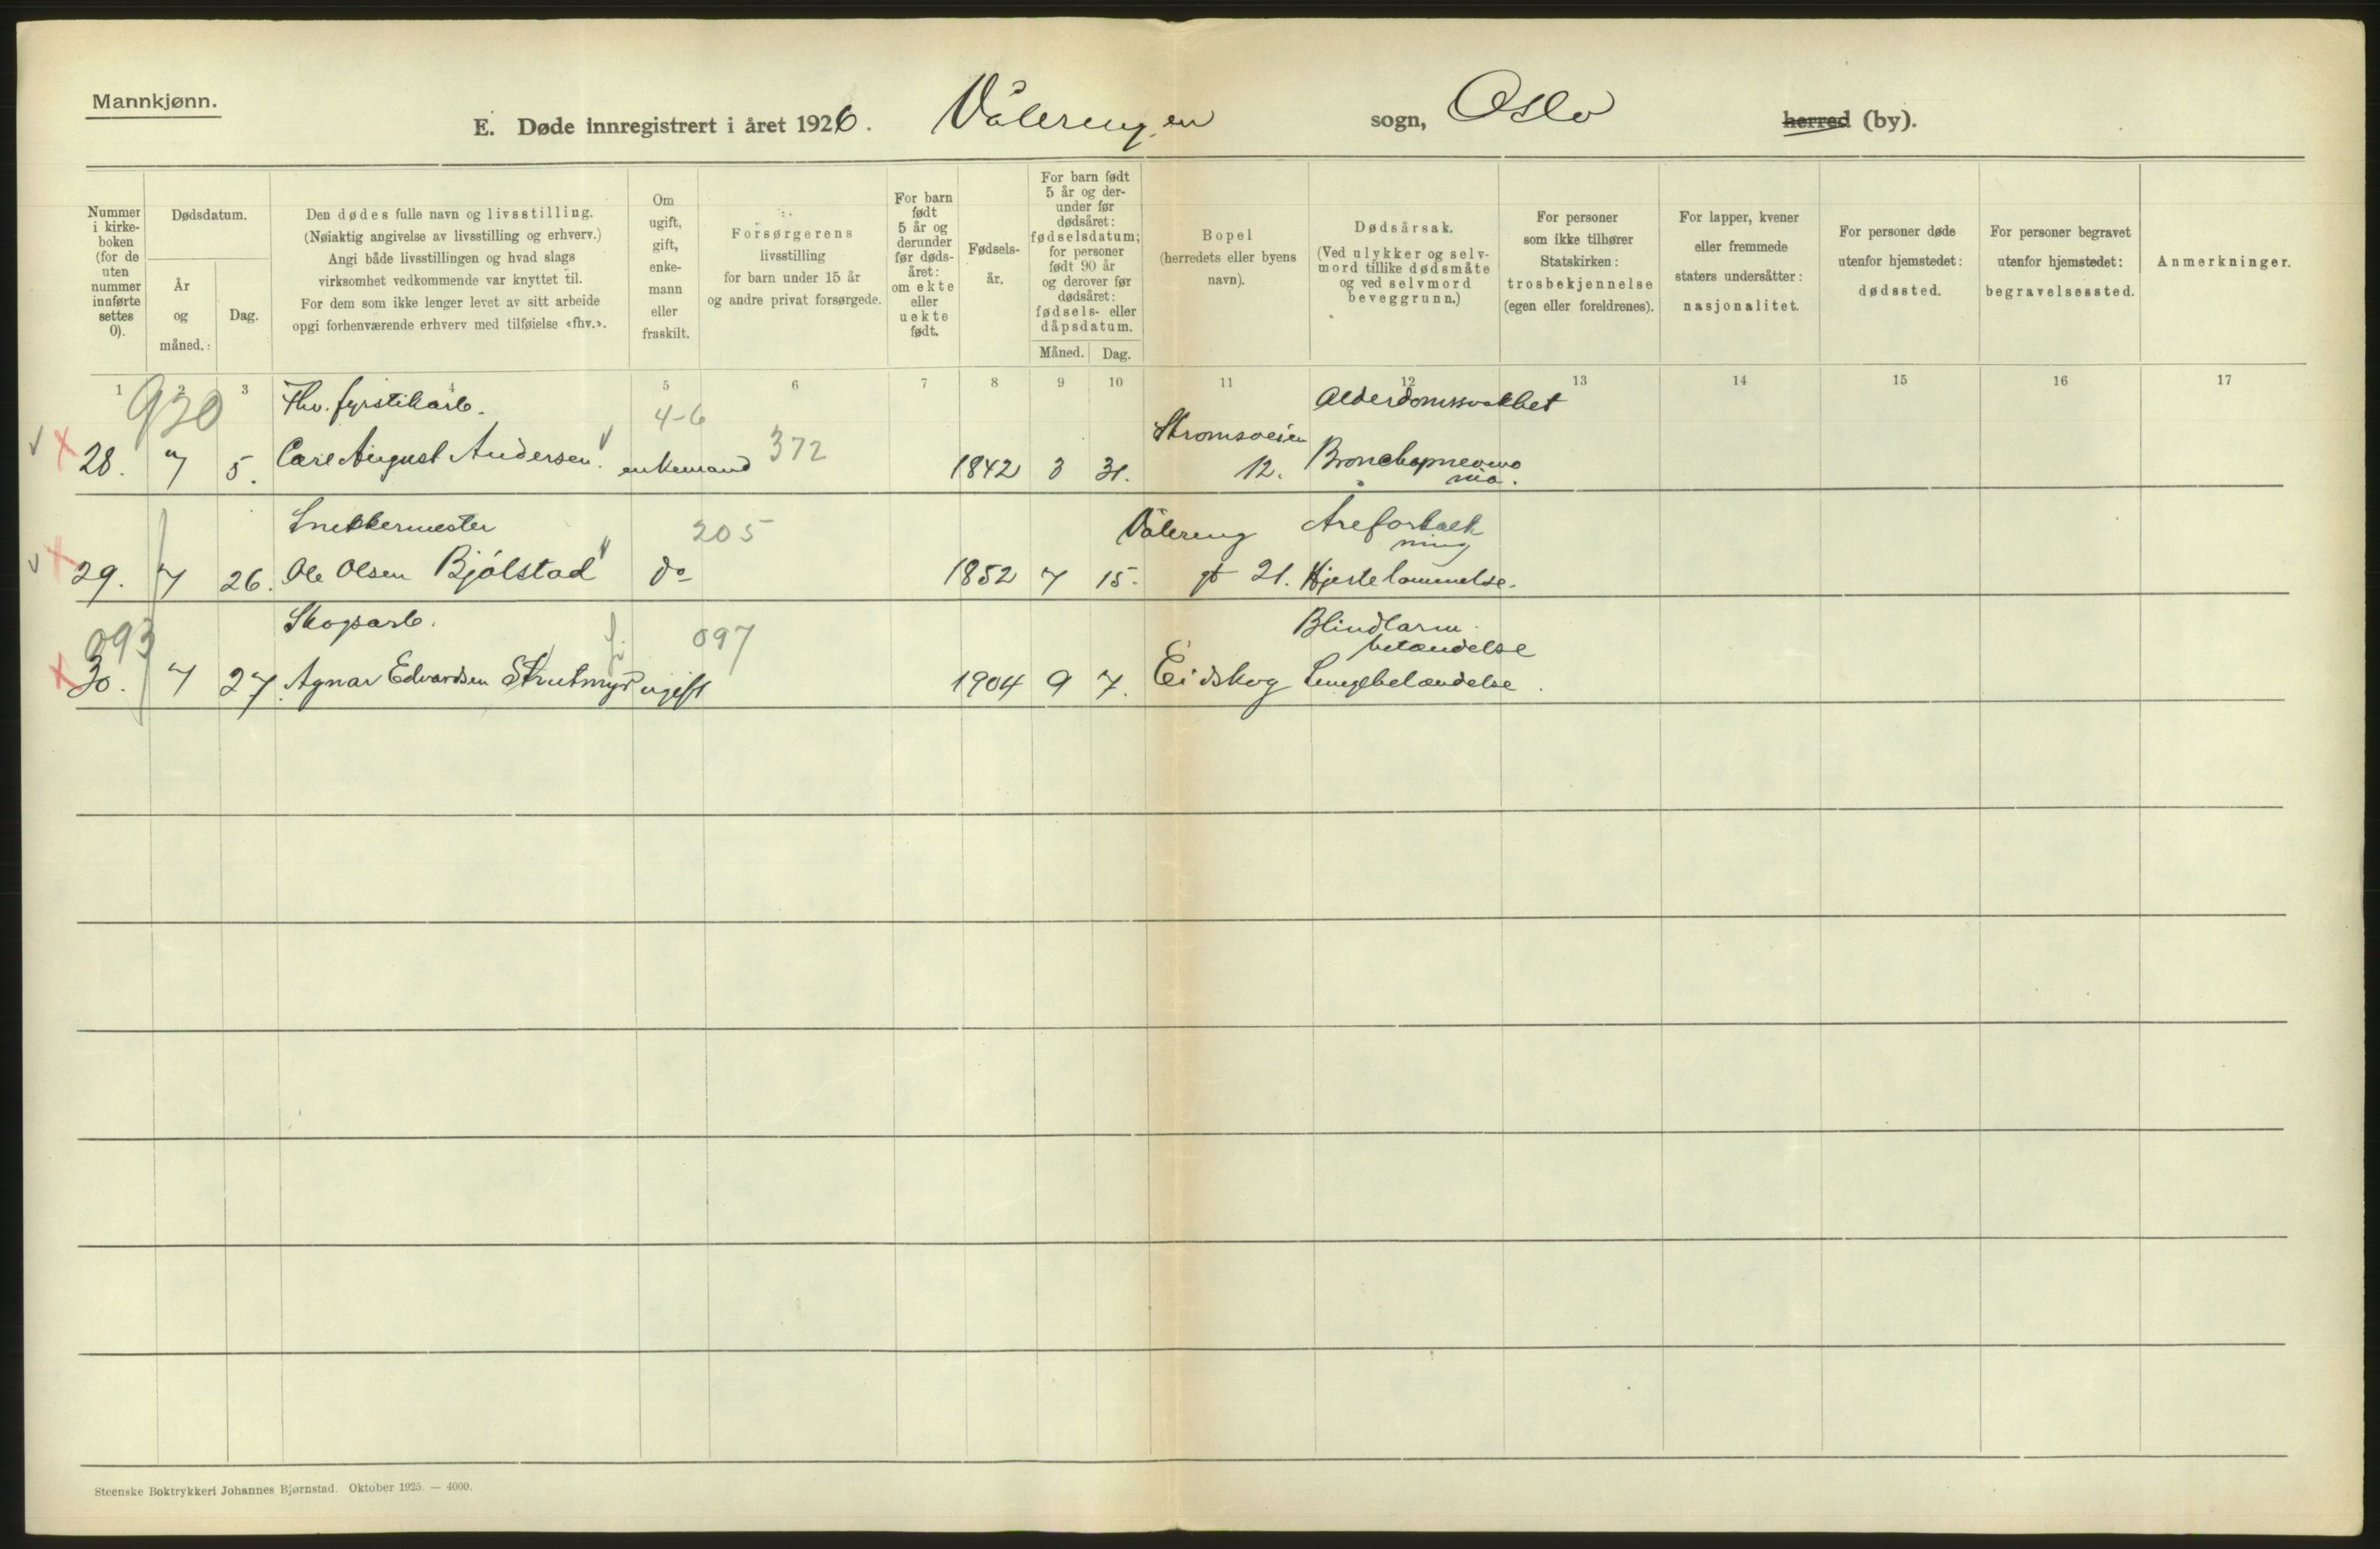 Mannkjønn.
E. Døde innregistrert i året 1926. Vålerengen sogn, Oslo herred (by).
Nummer i kirke-boken (for de uten nummer innførte settes 0).
Dødsdatum.
År og måned.
Dag.
Den dødes fulle navn og livsstilling.
(Nøiaktig angivelse av livsstilling og erhverv.)
Angi både livsstillingen og hvad slags
virksomhet vedkommende var knyttet til.
For dem som ikke lenger levet av sitt arbeide
opgi forhenværende erhverv med tilføielse «fhv.».
Om ugift, gift, enke-mann eller fraskilt.
Forsørgerens
livsstilling
for barn under 15 år
og andre privat forsørgede.
For barn født 5 år og derunder før døds-året: om ekte eller uekte født.
Fødsels-år.
For barn født 5 år og der-under før dødsåret: fødselsdatum; for personer født 90 år og derover før dødsåret: fødsels- eller dåpsdatum.
Måned. Dag.
Bopel
(herredets eller byens
navn).
Dødsårsak.
(Ved ulykker og selv-
mord tillike dødsmåte
og ved selvmord
beveggrunn.)
For personer
som ikke tilhører
Statskirken:
trosbekjennelse
(egen eller foreldrenes).
For lapper, kvener
eller fremmede
staters undersåtter:
nasjonalitet.
For personer døde
utenfor hjemstedet:
dødssted.
For personer begravet
utenfor hjemstedet:
begravelsessted.
Anmerkninger.
1 2 3 4 5 6 7 8 9 10 11 12 13 14 15 16 17
930 Fhv. fyrstikarb. 4-6 Alderdomssvakhet
28. 7 5. Carl August Andersen. enkemand 372 1842 3 31. Strømsveien 12. Bronchopneumonia.
Snekkermester 205 Vålereng Åreforkalkning
29. 7 26. Ole Olsen Bjølstad do 1852 7 15. gt 21. Hjertelammelse.
093 Skogsarb. 097 Blindtarmbetændelse
30. 7 27. Agnar Edvardsen ugift 1904 9 7. Eidskog Lungebetændelse.
Steenske Boktrykkeri Johannes Bjørnstad. Oktober 1925. — 4000.